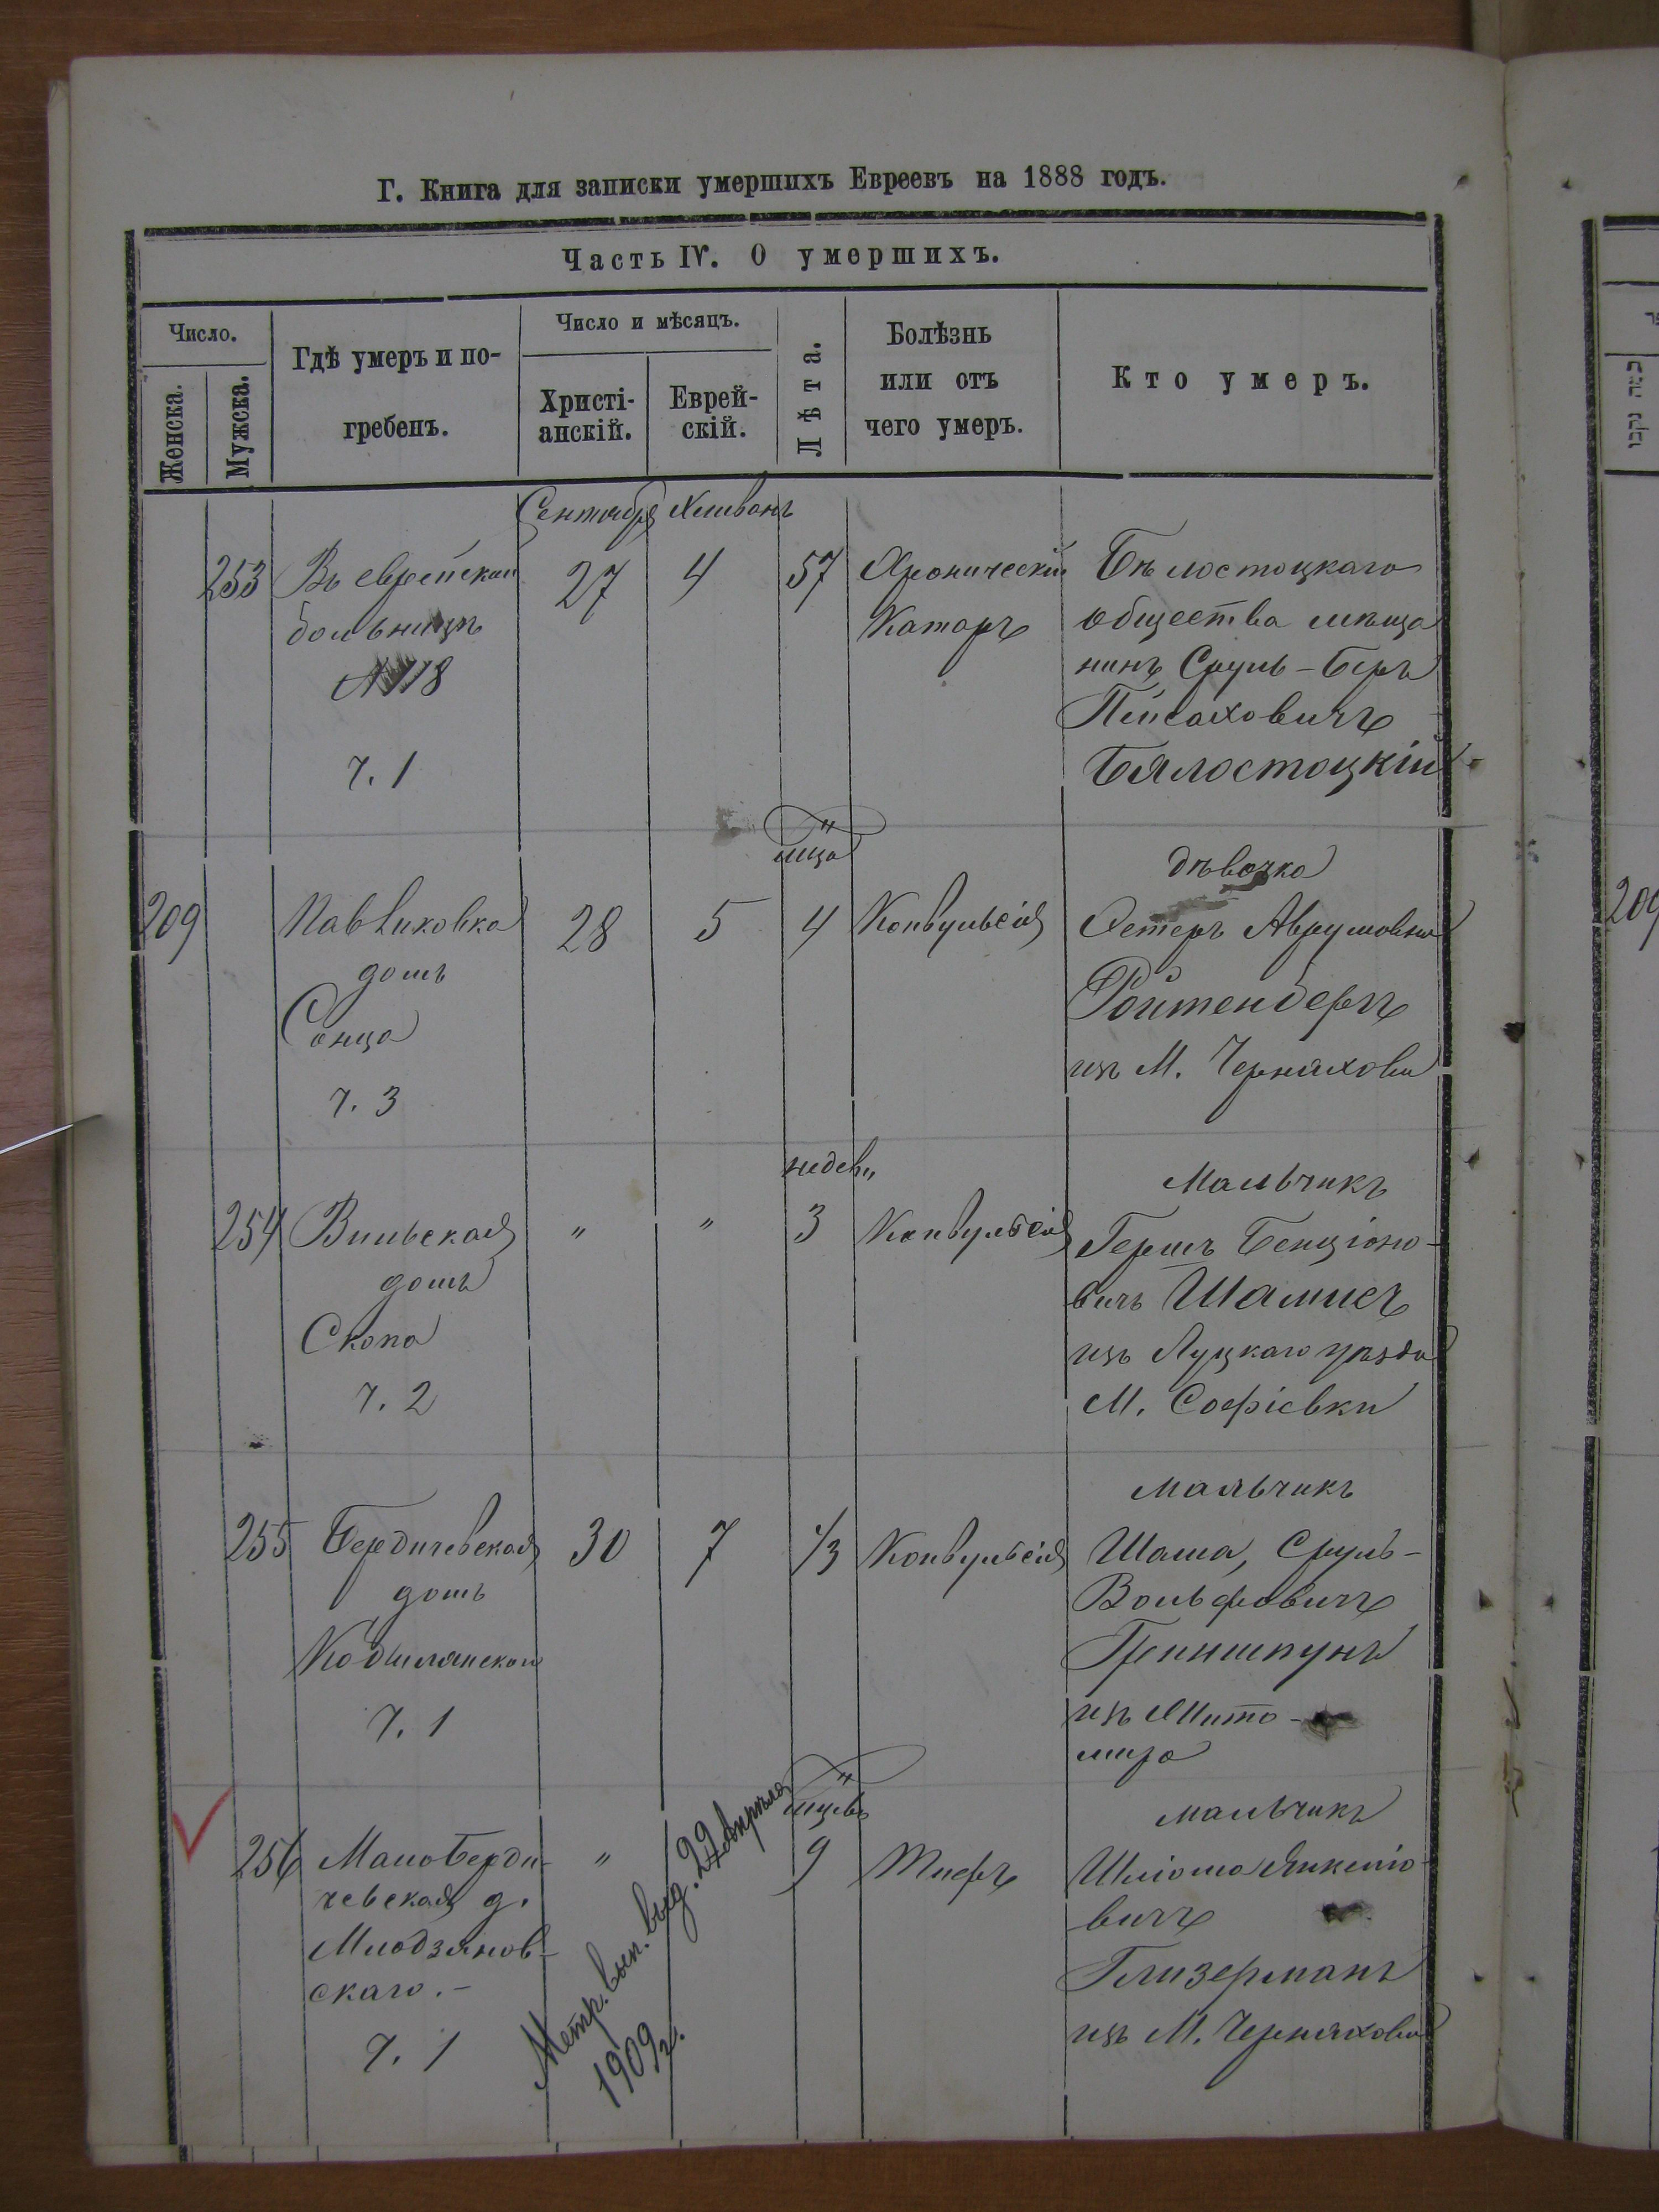 Г. Книга для записки умершихъ Евреевъ на 1888 годъ.
Часть IV. О умершихъ.
Число.
Женска.
Мужска.
Гдѣ умеръ и по-
гребенъ.
Число и мѣсяцъ.
Христі-
анскій.
Еврей-
скій.
Лѣта.
Болѣзнь
или отъ
чего умеръ.
Кто умеръ.
Сентября Хешванъ
253
Въ еврейской
больницѣ
№ 118
ч. 1
27
4
57
Хроническій
Катаръ
Бѣлостоцкаго
общества мѣща
нинъ Сруль-Беръ
Пейсаховичъ
Бялостоцкій
209
Павликовка
домъ
Сонца
ч. 3
28
5
мца
4
Конвульсія
дѣвочка
Естеръ Аврумовна
Ройтенбергъ
изъ М. Черняхова
254
Вильская
домъ
Скопа
ч. 2
"
"
недель
3
Конвульсія
Мальчикъ
Гершъ Бенціоно-
вичъ Шамисъ
изъ Луцкаго уѣзда
М. Софіевки
255
Бердичевская
домъ
ч. 1
30
7
1/3
Конвульсія
мальчикъ
Шама, Сруль-
Вольфовичъ
Гриншпунъ
изъ Жито-
мира
256
Мало Берди-
чевская д.
Млодзянов-
скаго.-
ч. 1
"
Метр. вып. выд. 22 апрѣля
1909 г.
мцевъ
9
Тифъ
мальчикъ
Шліома Янкеліо-
вичъ
Глизерманъ
изъ М. Черняхова
209